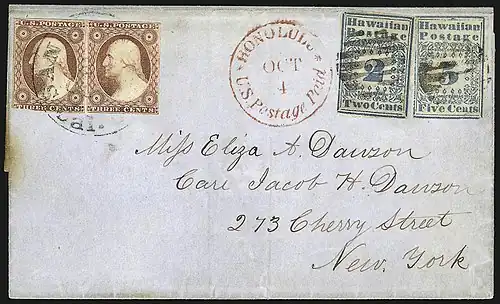 U.S. POSTAGE. U.S. POSTAGE.
THREE CENTS. THREE CENTS.
Cal.
HONOLULU
OCT
4
U.S. Postage Paid
Hawaiian
Postage
2
Two Cents
Hawaiian
Postage
5
Five Cents
Miss Eliza A. Dawson
Care Jacob H. Dawson
273 Cherry Street
New. York